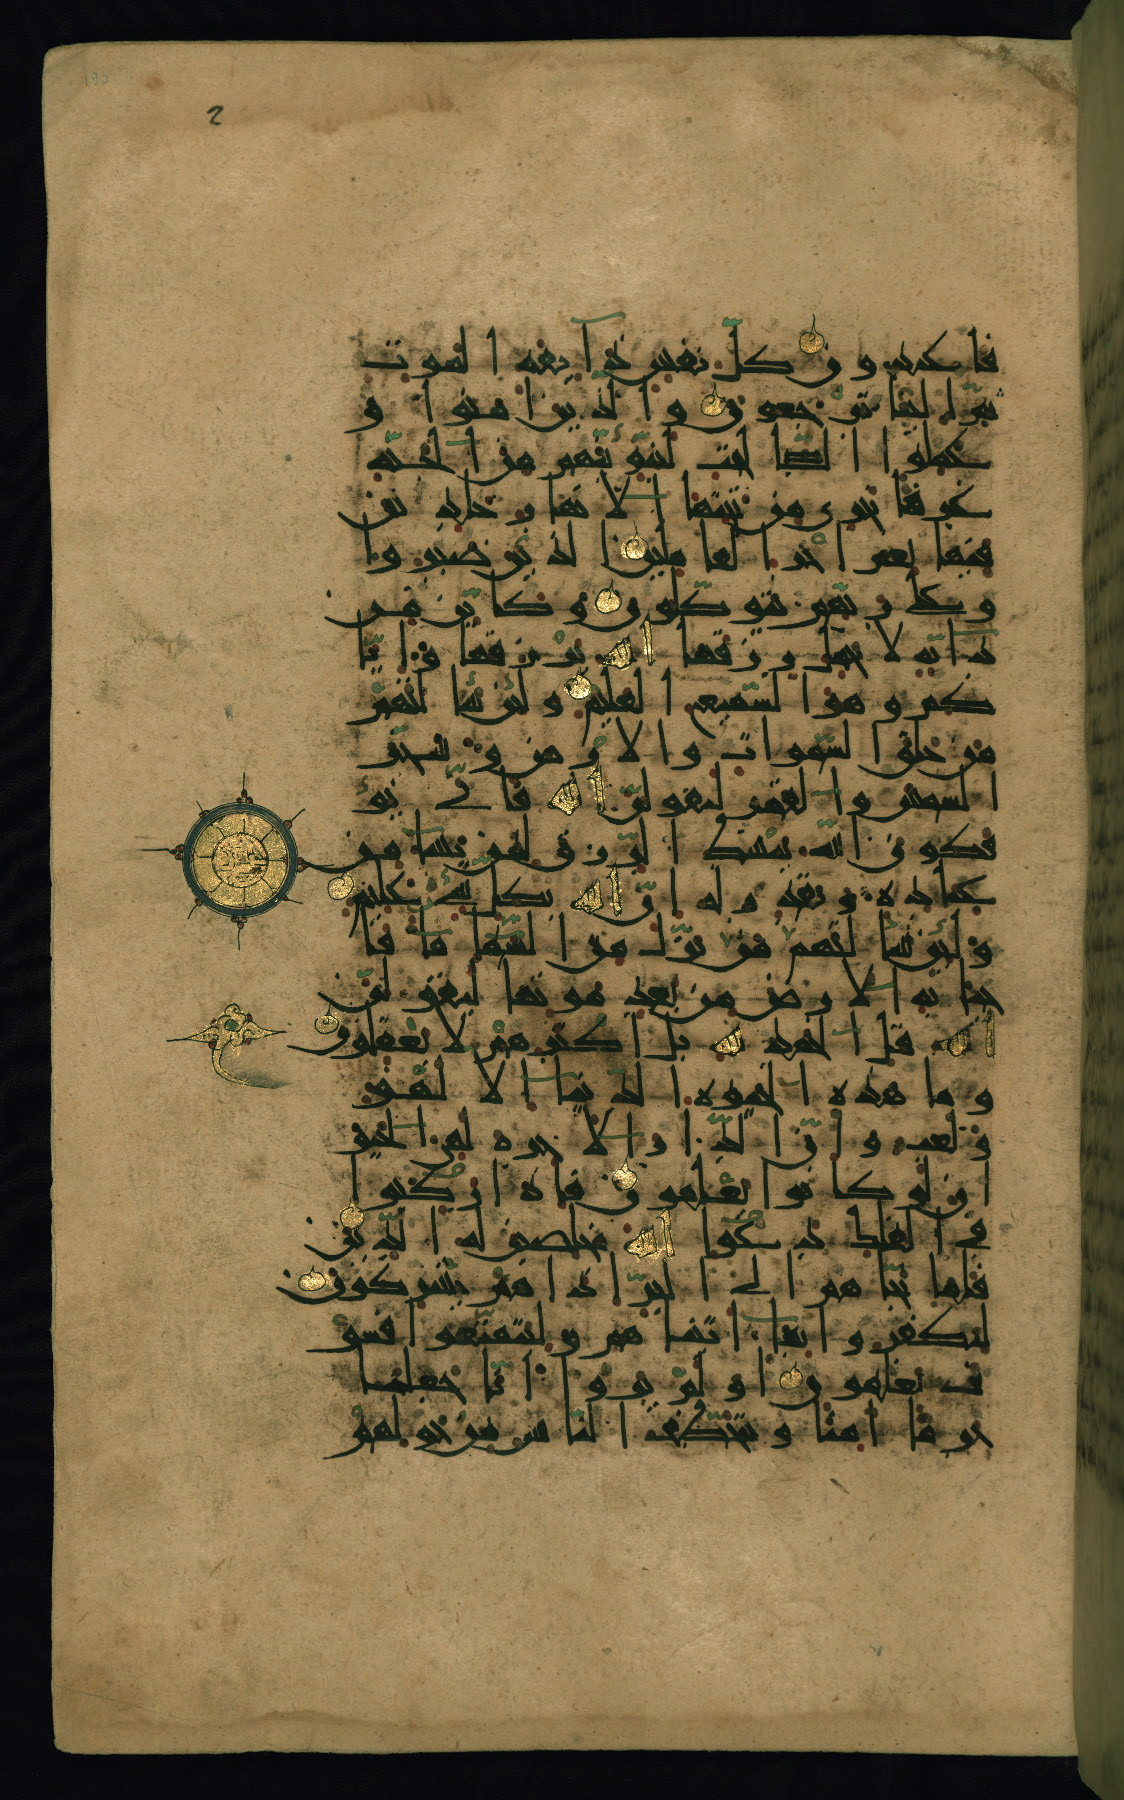 فاعبدون كل نفس ذآئقة الموت
ثم إلينا ترجعون والذين امنوا و
عملوا الصالحات لنبوئنهم من الجنة
غرفا تجري من تحتها الانهار خالدين
فيها نعم اجر العاملين الذين صبروا
وعلى ربهم يتوكلون وكاين من
دابة لا تحمل رزقها الله يرزقها وايا
كم وهو السميع العليم ولئن سالتهم
من خلق السموات والارض وسخر
الشمس والقمر ليقولن الله فانى يؤ
فكون الله يبسط الرزق لمن يشا من
عباده ويقدر له ان الله بكل شيء عليم
ولئن سالتهم من نزل من السما ما فا
حيا به الارض من بعد موتها ليقولن
الله قل الحمد لله بل اكثرهم لا يعقلون
وما هذه الحيوة الدنيا الا لهو
ولعب وان الدار الاخرة لهي الحيو
ان لو كانوا يعلمون فاذا ركبوا
في الفلك دعوا الله مخلصين له الدين
فلما نجاهم الى البر اذا هم يشركون
ليكفروا بما اتيناهم وليتمتعوا فسو
ف يعلمون اولم يروا انا جعلنا
حرما امنا ويتخطف الناس من حولهم